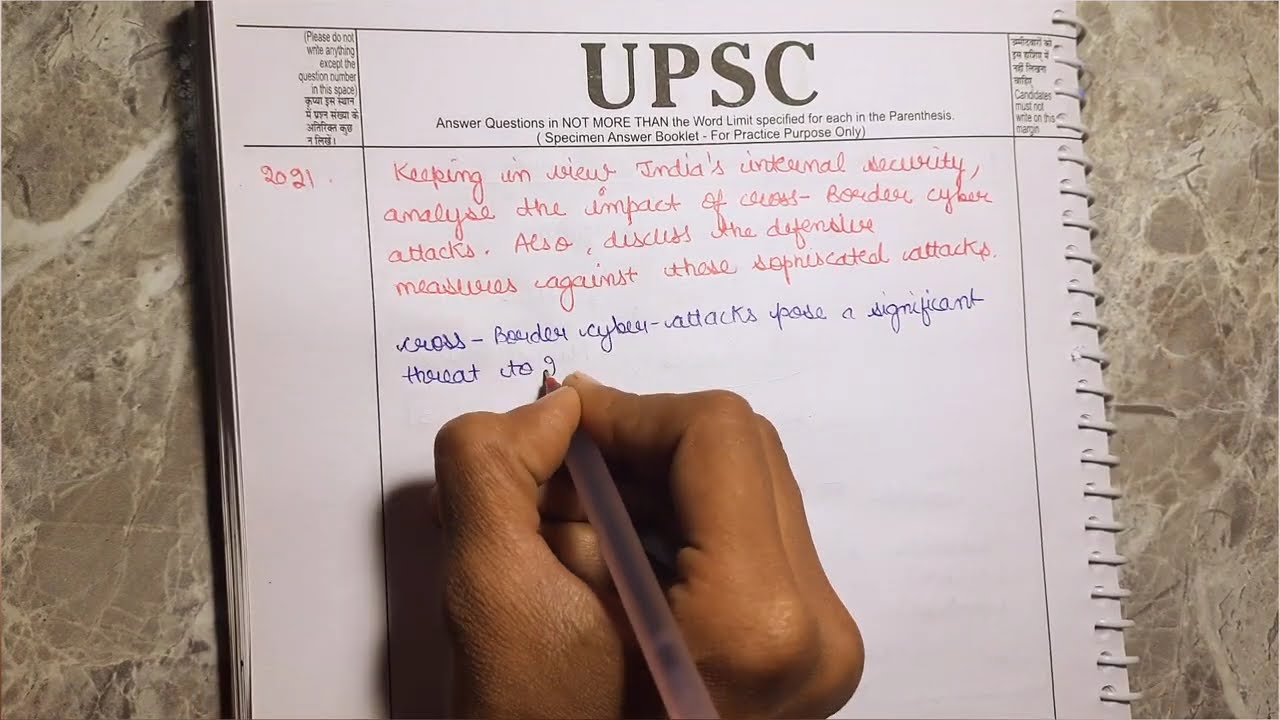 (Please do not
write anything
except the
question number
in this space)
कृप्या इस स्थान
में प्रश्न संख्या के
अतिरिक्त कुछ
न लिखें।
UPSC
Answer Questions in NOT MORE THAN the Word Limit specified for each in the Parenthesis.
( Specimen Answer Booklet - For Practice Purpose Only)
उम्मीदवारों को
इस हाशिए में
नहीं लिखना
चाहिए
Candidates
must not
write on this
margin
2021.
Keeping in view India's internal security,
analyse the impact of cross-Border cyber
attacks. Also, discuss the defensive
measures against these sophiscated attacks.
cross-Border cyber-attacks pose a significant
threat to